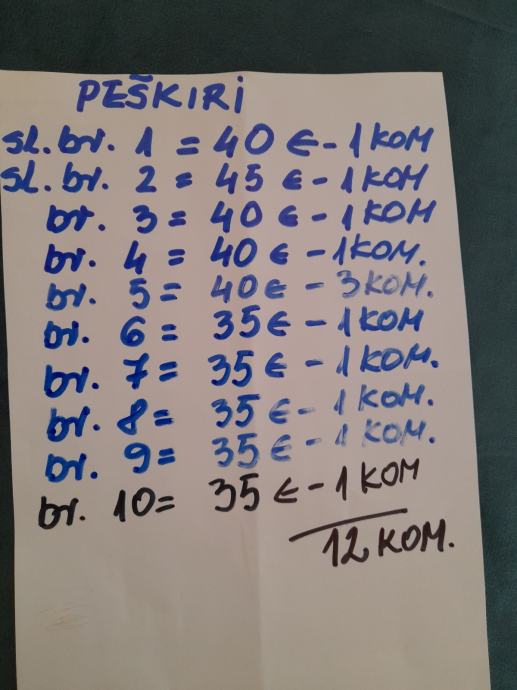 PEŠKIRI
sl. br. 1 = 40 € - 1 KOM
sl. br. 2 = 45 € - 1 KOM
br. 3 = 40 € - 1 KOM
br. 4 = 40 € - 1 KOM.
br. 5 = 40 € - 3 KOM.
br. 6 = 35 € - 1 KOM
br. 7 = 35 € - 1 KOM.
br. 8 = 35 € - 1 KOM.
br. 9 = 35 € - 1 KOM.
br. 10 = 35 € - 1 KOM
12 KOM.